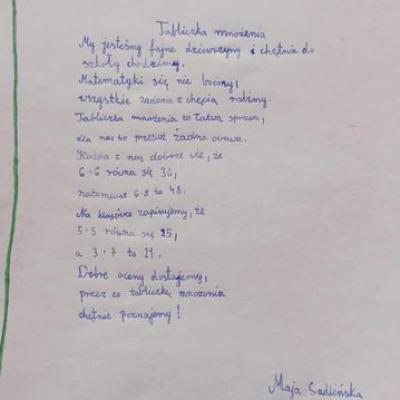 Tabliczka mnożenia
My jesteśmy fajne dziewczyny i chętnie do
szkoły chodzimy.
Matematyki się nie boimy,
wszystkie zadania z chęcią robimy.
Tabliczka mnożenia to łatwa sprawa,
dla nas to przecież żadna obawa.
Każda z nas dobrze wie, że
6·6 równa się 36,
natomiast 6·8 to 48.
Na klasówce zapisujemy, że
5·5 równa się 25,
a 3·7 to 21.
Dobre oceny dostajemy,
przez co tabliczkę mnożenia
chętnie poznajemy!
Maja Sadlińska